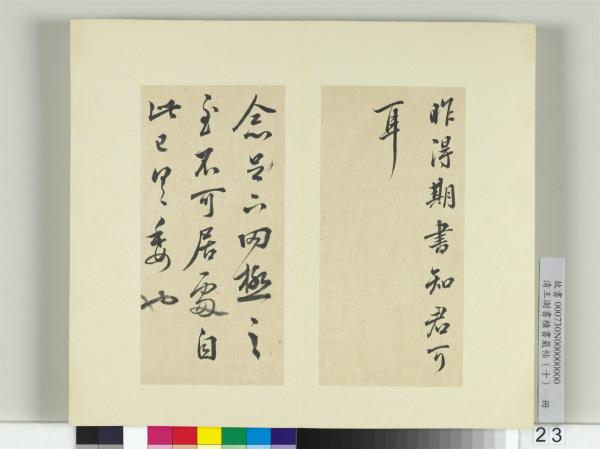 昨得期書知君可
耳
念足下罔極之
至不可居處自
此已委也
故書000730N000000000
清王澍書積書巖帖(十) 冊
23